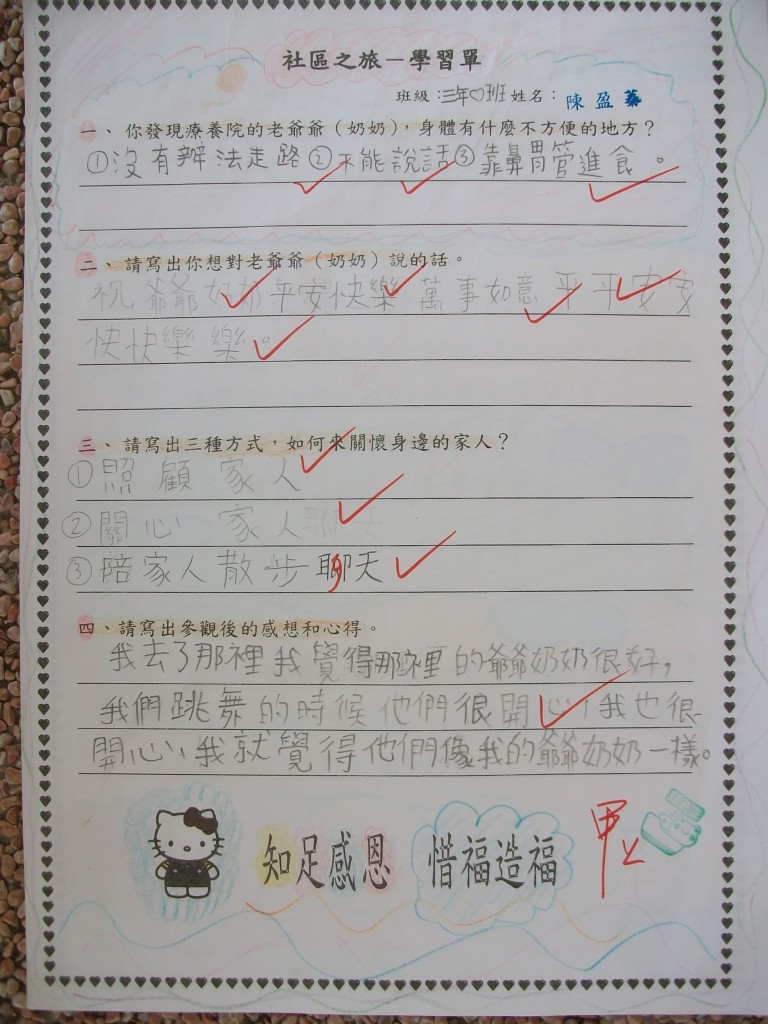 社區之旅－學習單
班級：三年♡班 姓名： 陳盈蓁
一、 你發現療養院的老爺爺（奶奶），身體有什麼不方便的地方？
①沒有辦法走路②不能說話③靠鼻胃管進食。
二、 請寫出你想對老爺爺（奶奶）說的話。
祝爺爺奶奶平安快樂 萬事如意 平平安安
快快樂樂。
三、 請寫出三種方式，如何來關懷身邊的家人？
①照顧家人
②關心家人
③陪家人散步聊天
四、請寫出參觀後的感想和心得。
我去了那裡我覺得那裡的爺爺奶奶很好，
我們跳舞的時候他們很開心，我也很
開心，我就覺得他們像我的爺爺奶奶一樣。
知足感恩 惜福造福 甲上